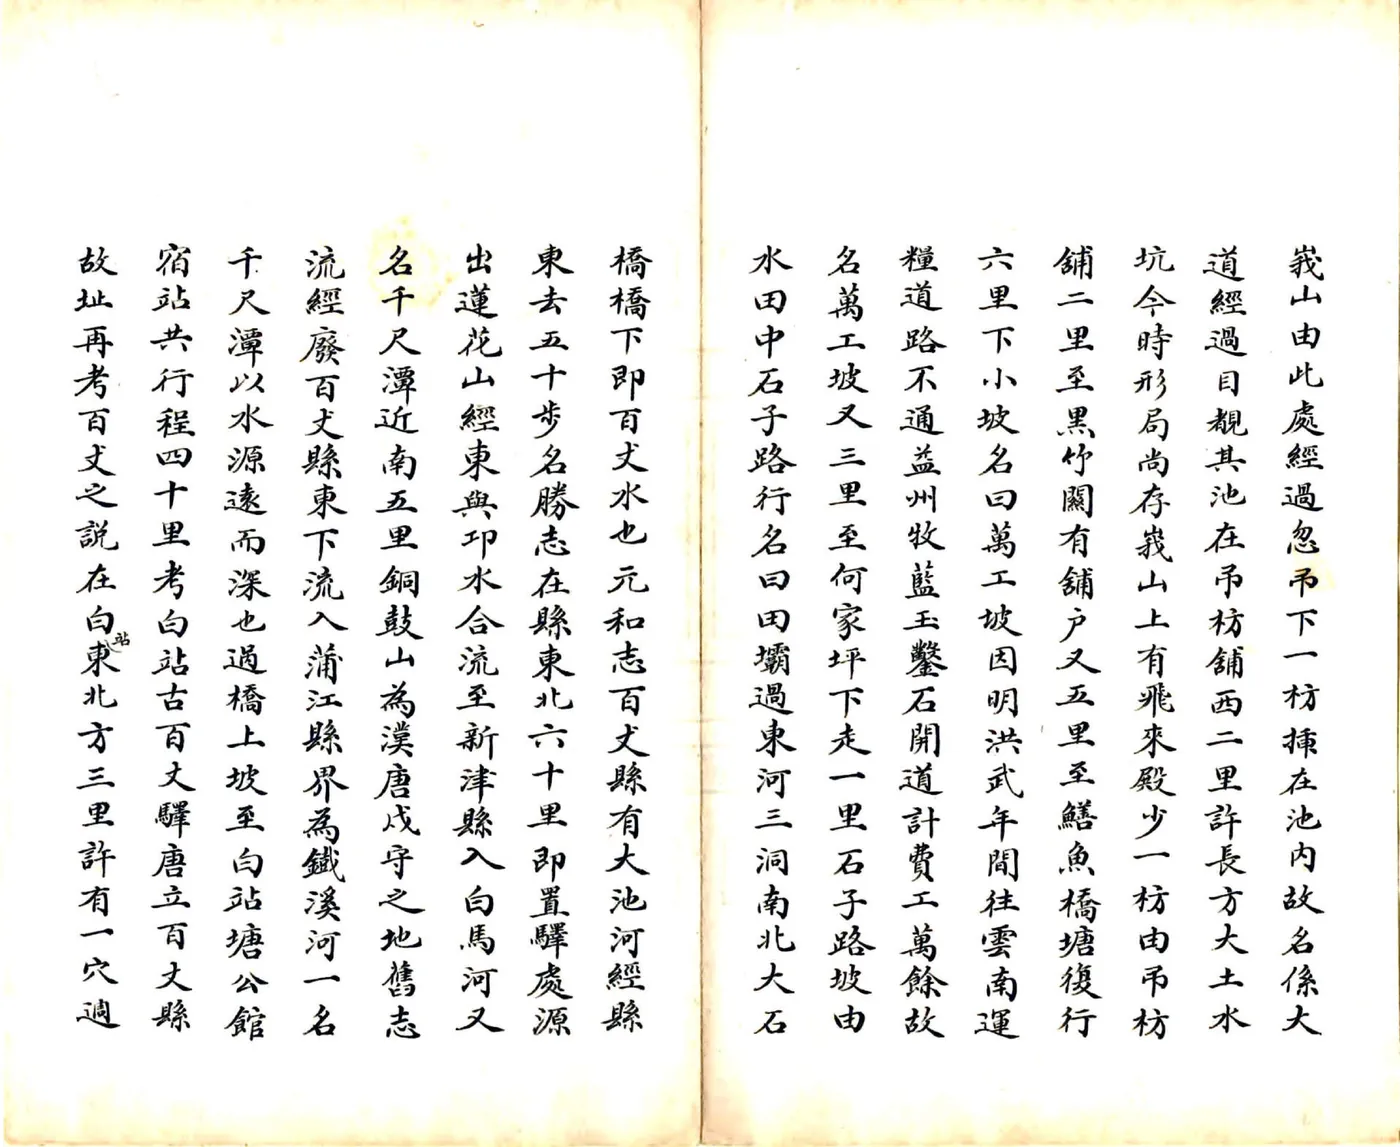 峩山由此處經過忽吊下一枋揷在池内故名係大
道經過目覩其池在吊枋舖西二里許長方大土水
坑今時形局尚存峩山上有飛來殿少一枋由吊枋
舖二里至黒竹關有舖户又五里至鱔魚橋塘復行
六里下小坡名曰萬工坡因明洪武年間往雲南運
糧道路不通益州牧藍玉鑿石開道計費工萬餘故
名萬工坡又三里至何家坪下走一里石子路坡由
水田中石子路行名曰田壩過東河三洞南北大石
橋橋下即百丈水也元和志百丈縣有大池河經縣
東去五十步名勝志在縣東北六十里即置驛處源
出蓮花山經東與邛水合流至新津縣入白馬河又
名千尺潭近南五里銅鼓山為漢唐戍守之地舊志
流經廢百丈縣東下流入蒲江縣界為鐵溪河一名
千尺潭以水源遠而深也過橋上坡至白站塘公館
宿站共行程四十里考白站古百丈驛唐立百丈縣
故址再考百丈之説在白站東北方三里許有一穴週